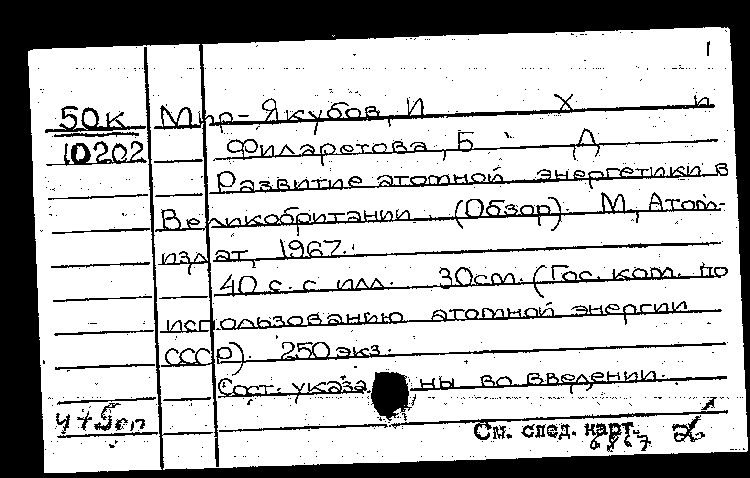 1
50к Мир-Якубов, И Х и
10202 Филаретова, Б Д
Развитие атомной энергетики в
Великобритании (Обзор). М, Атом-
издат, 1967.
40 с. с илл. 30cm. (Гос. ком. по
использованию атомной энергии
СССР). 250 экз.
Сост. указаны во введении.
См. след. карт.